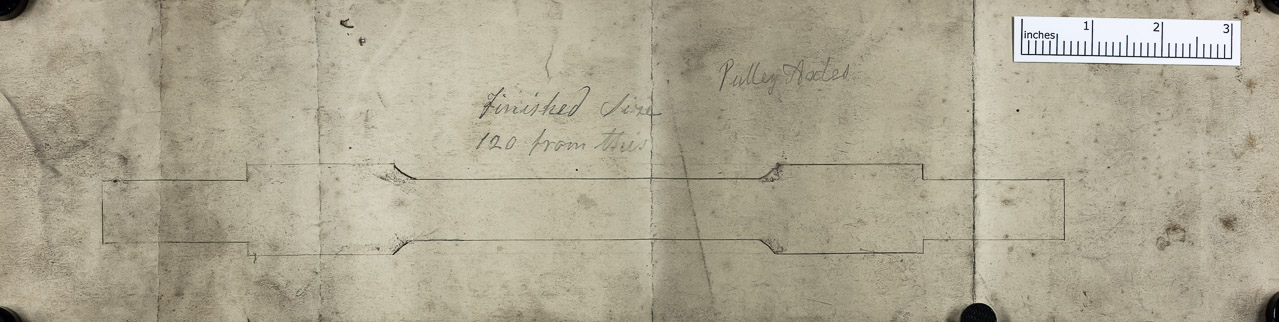 Pulley Axles
Finished Size
120 from this
inches 1 2 3